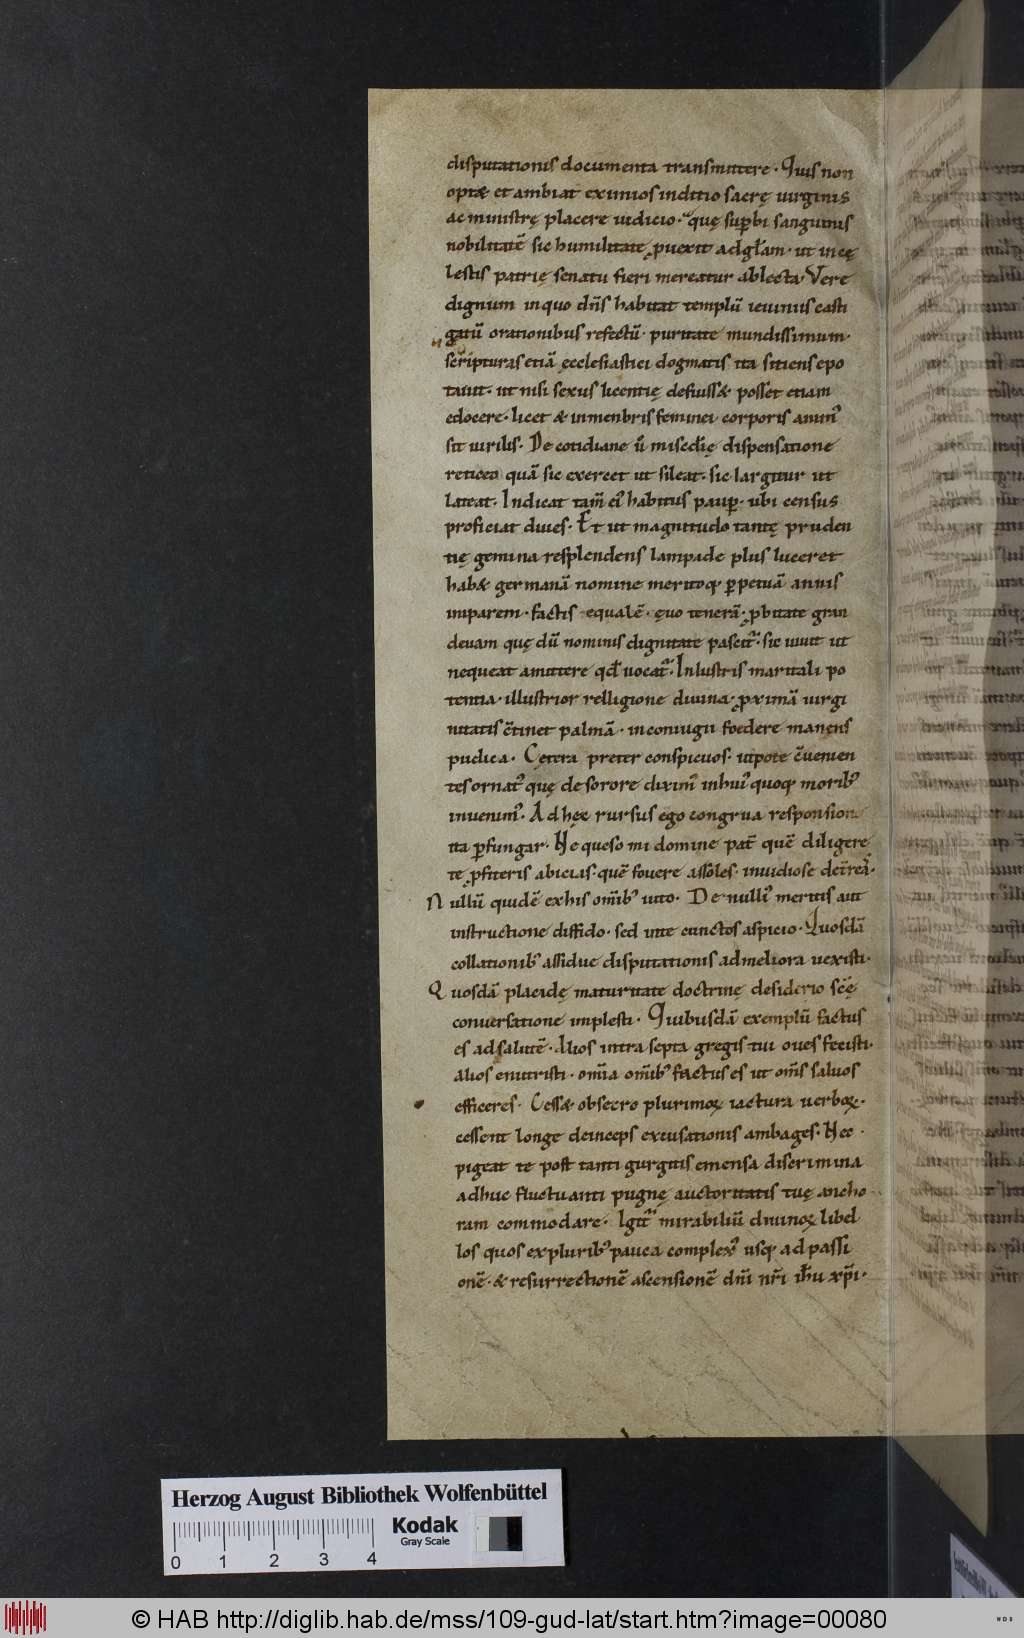 disputationis documenta transmittere · Quis non
optæ et ambiat eximios inditio sacrę uirginis
ac ministrę placere iudicio · quę sup̱bi sanguinis
nobilitatē sic humilitate ꝓuexit ad gl̄am · ut in cę
lestis patrię senatu fieri mereatur ablecta Vere
dignum in quo dn̄s habitat templū ieiuniis casti
gatū orationibus refectū · puritate mundissimum ·
scripturas etiā ęcclesiastici dogmatis ita sitiens epo
tauit · ut nisi sexus licentię defuissæ posset etiam
edocere · licet & in menbris feminei corporis animꝰ
sit uirilis · De cotidiane ū misedię dispensatione
reticeo quā sic exercet ut sileat · sic largitur ut
lateat · Indicat tam̄ eiꝰ habitus paup̱ · ubi census
proficiat diues · Et ut magnitudo tantę pruden
tię gemina resplendens lampade plus luceret
habæ germanā nomine meritoq; p̱petuā annis
imparem · factis equalē · ęuo tenerā · ꝓbitate gran
deuam quę dū nominis dignitate pascit᷑ · sic uiuit ut
nequeat amittere qd̄ uocat᷑ · Inlustris maritali po
tentia · illustrior relligione diuina · ꝓximā uirgi
nitatis c̄tinet palmā · in coniugii foedere manens
pudica · Cętera preter conspicuos · utpote c̄uenien
tes ornatꝰ quę de sorore diximꝰ in huiꝰ quoq; moribꝰ
inuenimꝰ · Ad hęc rursus ego congrua responsione
ita p̱fungar · Ne queso mi domine pat̄ quē diligere
te ꝓfiteris abicias · quē fouere assoles · inuidiose
Nullū quidē ex his om̄ibꝰ uito · De nulliꝰ meritis aut
instructione diffido · sed inte cunctos aspicio · Quosdā
collationibꝰ assidue disputationis ad meliora uexisti ·
Quosdā placidę maturitate doctrinę desiderio scę̄
conuersatione implesti · Quibusdā exemplū factus
es ad salutē · Alios intra septa gregis tui oues fecisti ·
Alios enutristi · om̄ia om̄ibꝰ factus es ut om̄s saluos
efficeres · Cessæ obsecro plurimoꝝ iactura uerboꝝ ·
cessent longe deinceps excusationis ambages · Nec ·
pigeat te post tanti gurgitis emensa discrimina
adhuc fluctuanti pugnę auctoritatis tuę ancho
ram commodare · Igit᷑ mirabiliū diuinoꝝ libel
los quos ex pluribꝰ pauca complexꝰ usq; ad passi
onē · & resurrectionē ascensionē dn̄i nr̄i ih̄u xp̄i ·
Herzog August Bibliothek Wolfenbüttel
0 1 2 3 4
Kodak
Gray Scale
© HAB http://diglib.hab.de/mss/109-gud-lat/start.htm?image=00080
WDB